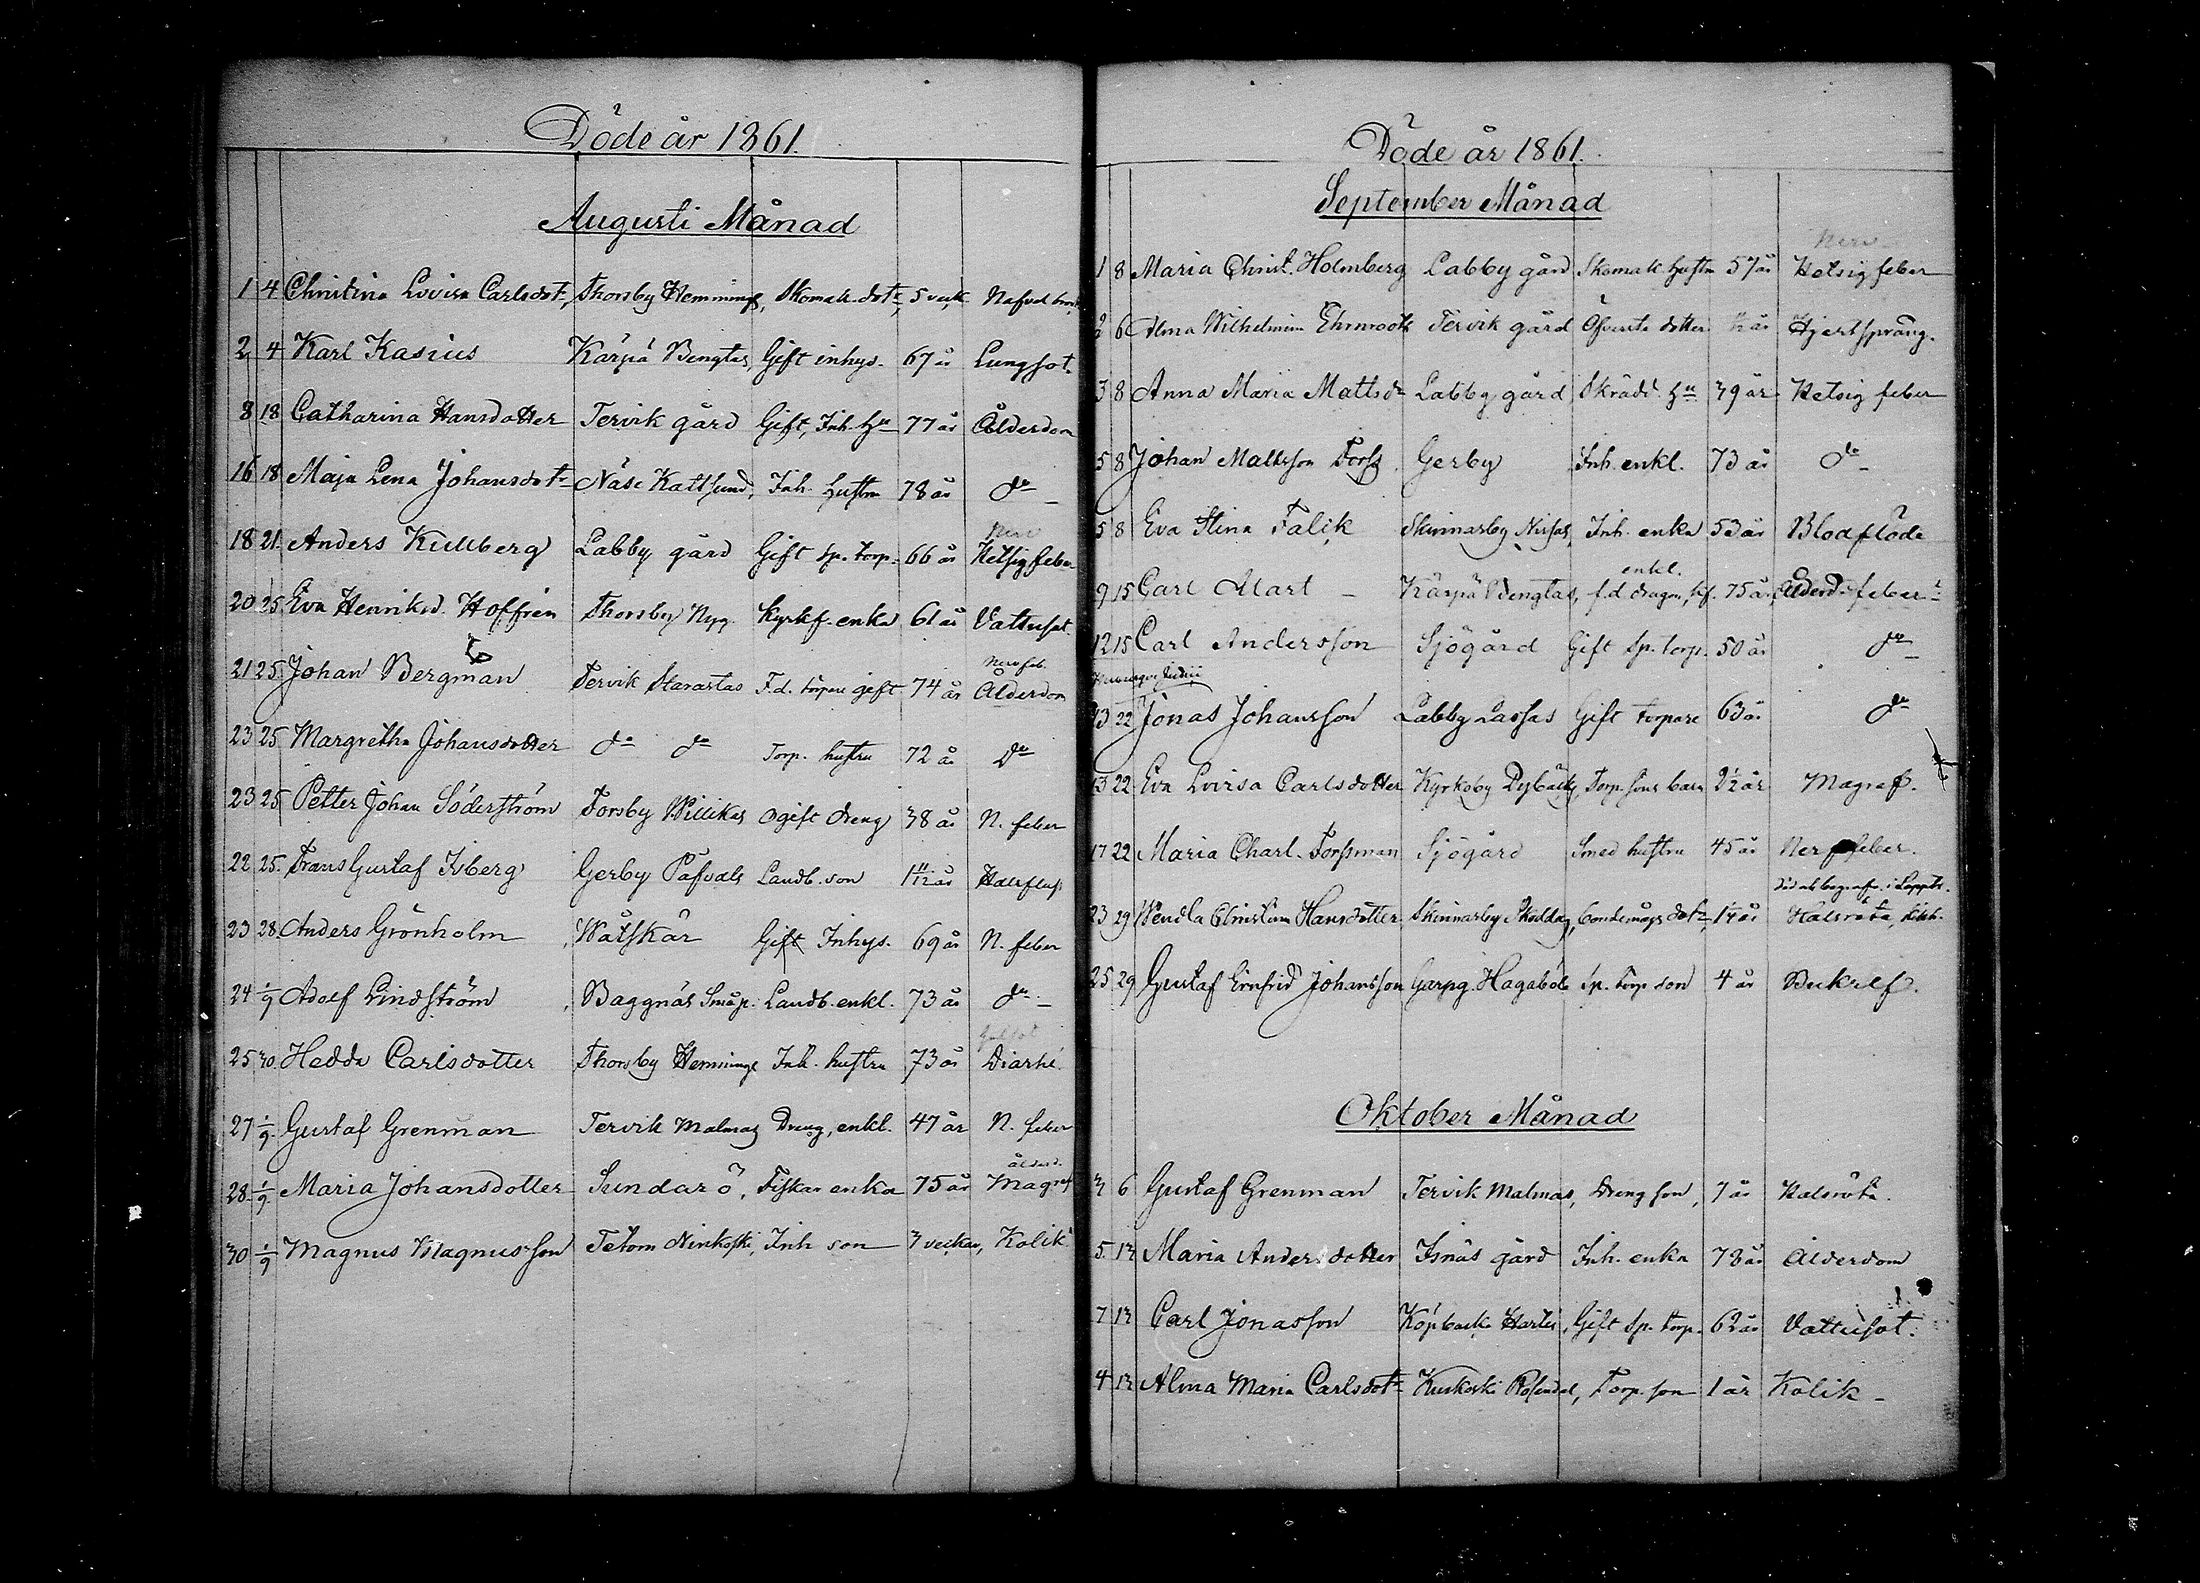 Döde år 1861.
Augusti Månad
1 4 Christina Lovisa Carlsdotr, Thorsby Hemmings, Skomak. dotr, 5 veck. Nafvel
2 4 Karl Kasius Kärpä Bengtas, Gift inhys. 67 år Lungsot.
8 18 Catharina Hansdotter Tervik gård Gift, Inh. Hu 77 år Ålderdom
16 18 Maja Lena Johansdotr Näse Kattsund, Inh. hustru 78 år do
Nerv
18 21. Anders Kullberg Labby gård Gift sp. torp. 66 år Hetsig feber
20 25 Eva Henriksd. Hoffrén Thorsby Nyg. Kyrkf. enka 61 år Vattusot.
Nervfeb.
21 25 Johan Bergman Tervik Starastas F.d. torpare gift 74 år Ålderdom
23 25 Margretha Johansdotter do do Torp. hustru 72 år do
23 25 Petter Johan Söderström Torsby Willikas ogift dreng 38 år N. feber
22 25. Frans Gustaf Isberg Gerby Påfvals Landb. son 1 11/12 år Halsfluss
23 28. Anders Grönholm Wåtskär Gift Inhys. 69 år N. feber
24 1/9 Adolf Lindström Baggnäs Småp. Landb. enkl. 73 år do
25 30. Hedda Carlsdotter Thorsby Hemmings Inh. hustru 73 år Diarhé
27 1/9. Gustaf Grenman Tervik Malmas Dreng, enkl. 47 år N. feber
ålderd.
28. 1/9 Maria Johansdotter Sundarö, Fiskar enka 75 år Magref
30 1/9 Magnus Magnusson Tetom Ninkoski, Inh son 3 veckor, Kolik
Döde år 1861.
September Månad
Nerv
1 8 Maria Christ. Holmberg Labby gård Skomak. hustru 57 år Hetsig feber
2 6 Alma Wilhelmina Ehrnrooth Tervik gård Öfverste dotter 1/2 år Hjertsprång.
3 8 Anna Maria Mattsdr Labby gård Skrädd. Hu 39 år Hetsig feber
5 8 Johan Mattsson Forss Gerby Inh. enkl. 73 år do
5 8 Eva Stina Falik Skinnarby Nissas, Inh. enka 53 år Blodflöde
enkl.
9 15 Carl Alart Kärpä Bengtas, f.d. dragon, 75 år, Ålderd. feber
12 15 Carl Andersson Sjögård Gift Sp. torp. 50 år do
13 22 Jonas Johansson Labby Lassas Gift torpare 63 år do
13 22 Eva Lovisa Carlsdotter Kyrkoby Dybäck, Torp. sons barn 2 1/2 år Magref.
17 22 Maria Charl. Forssman Sjögård Smed hustru 45 år Nerffeber.
begrafv. i Lapptr.
23 29 Wendla Christina Hansdotter Skinnarby Skedda, bondemågs dotr, 1 1/4 år Halsröta,
25 29 Gustaf Ernfrid Johansson Garpg. Hagaböle sp. torp. son 4 år Bukref.
Oktober Månad
3 6 Gustaf Grenman Tervik Malmas, Dreng son, 7 år Halsröta.
5 13 Maria Andersdotter Isnäs gård Inh. enka 78 år Ålderdom
7 13 Carl Jonasson Köpbacka Hartis, Gift sp. torp. 62 år Vattusot.
4 13 Alma Maria Carlsdotr Kuskoski Rosendal, Torp. son 1 år Kolik